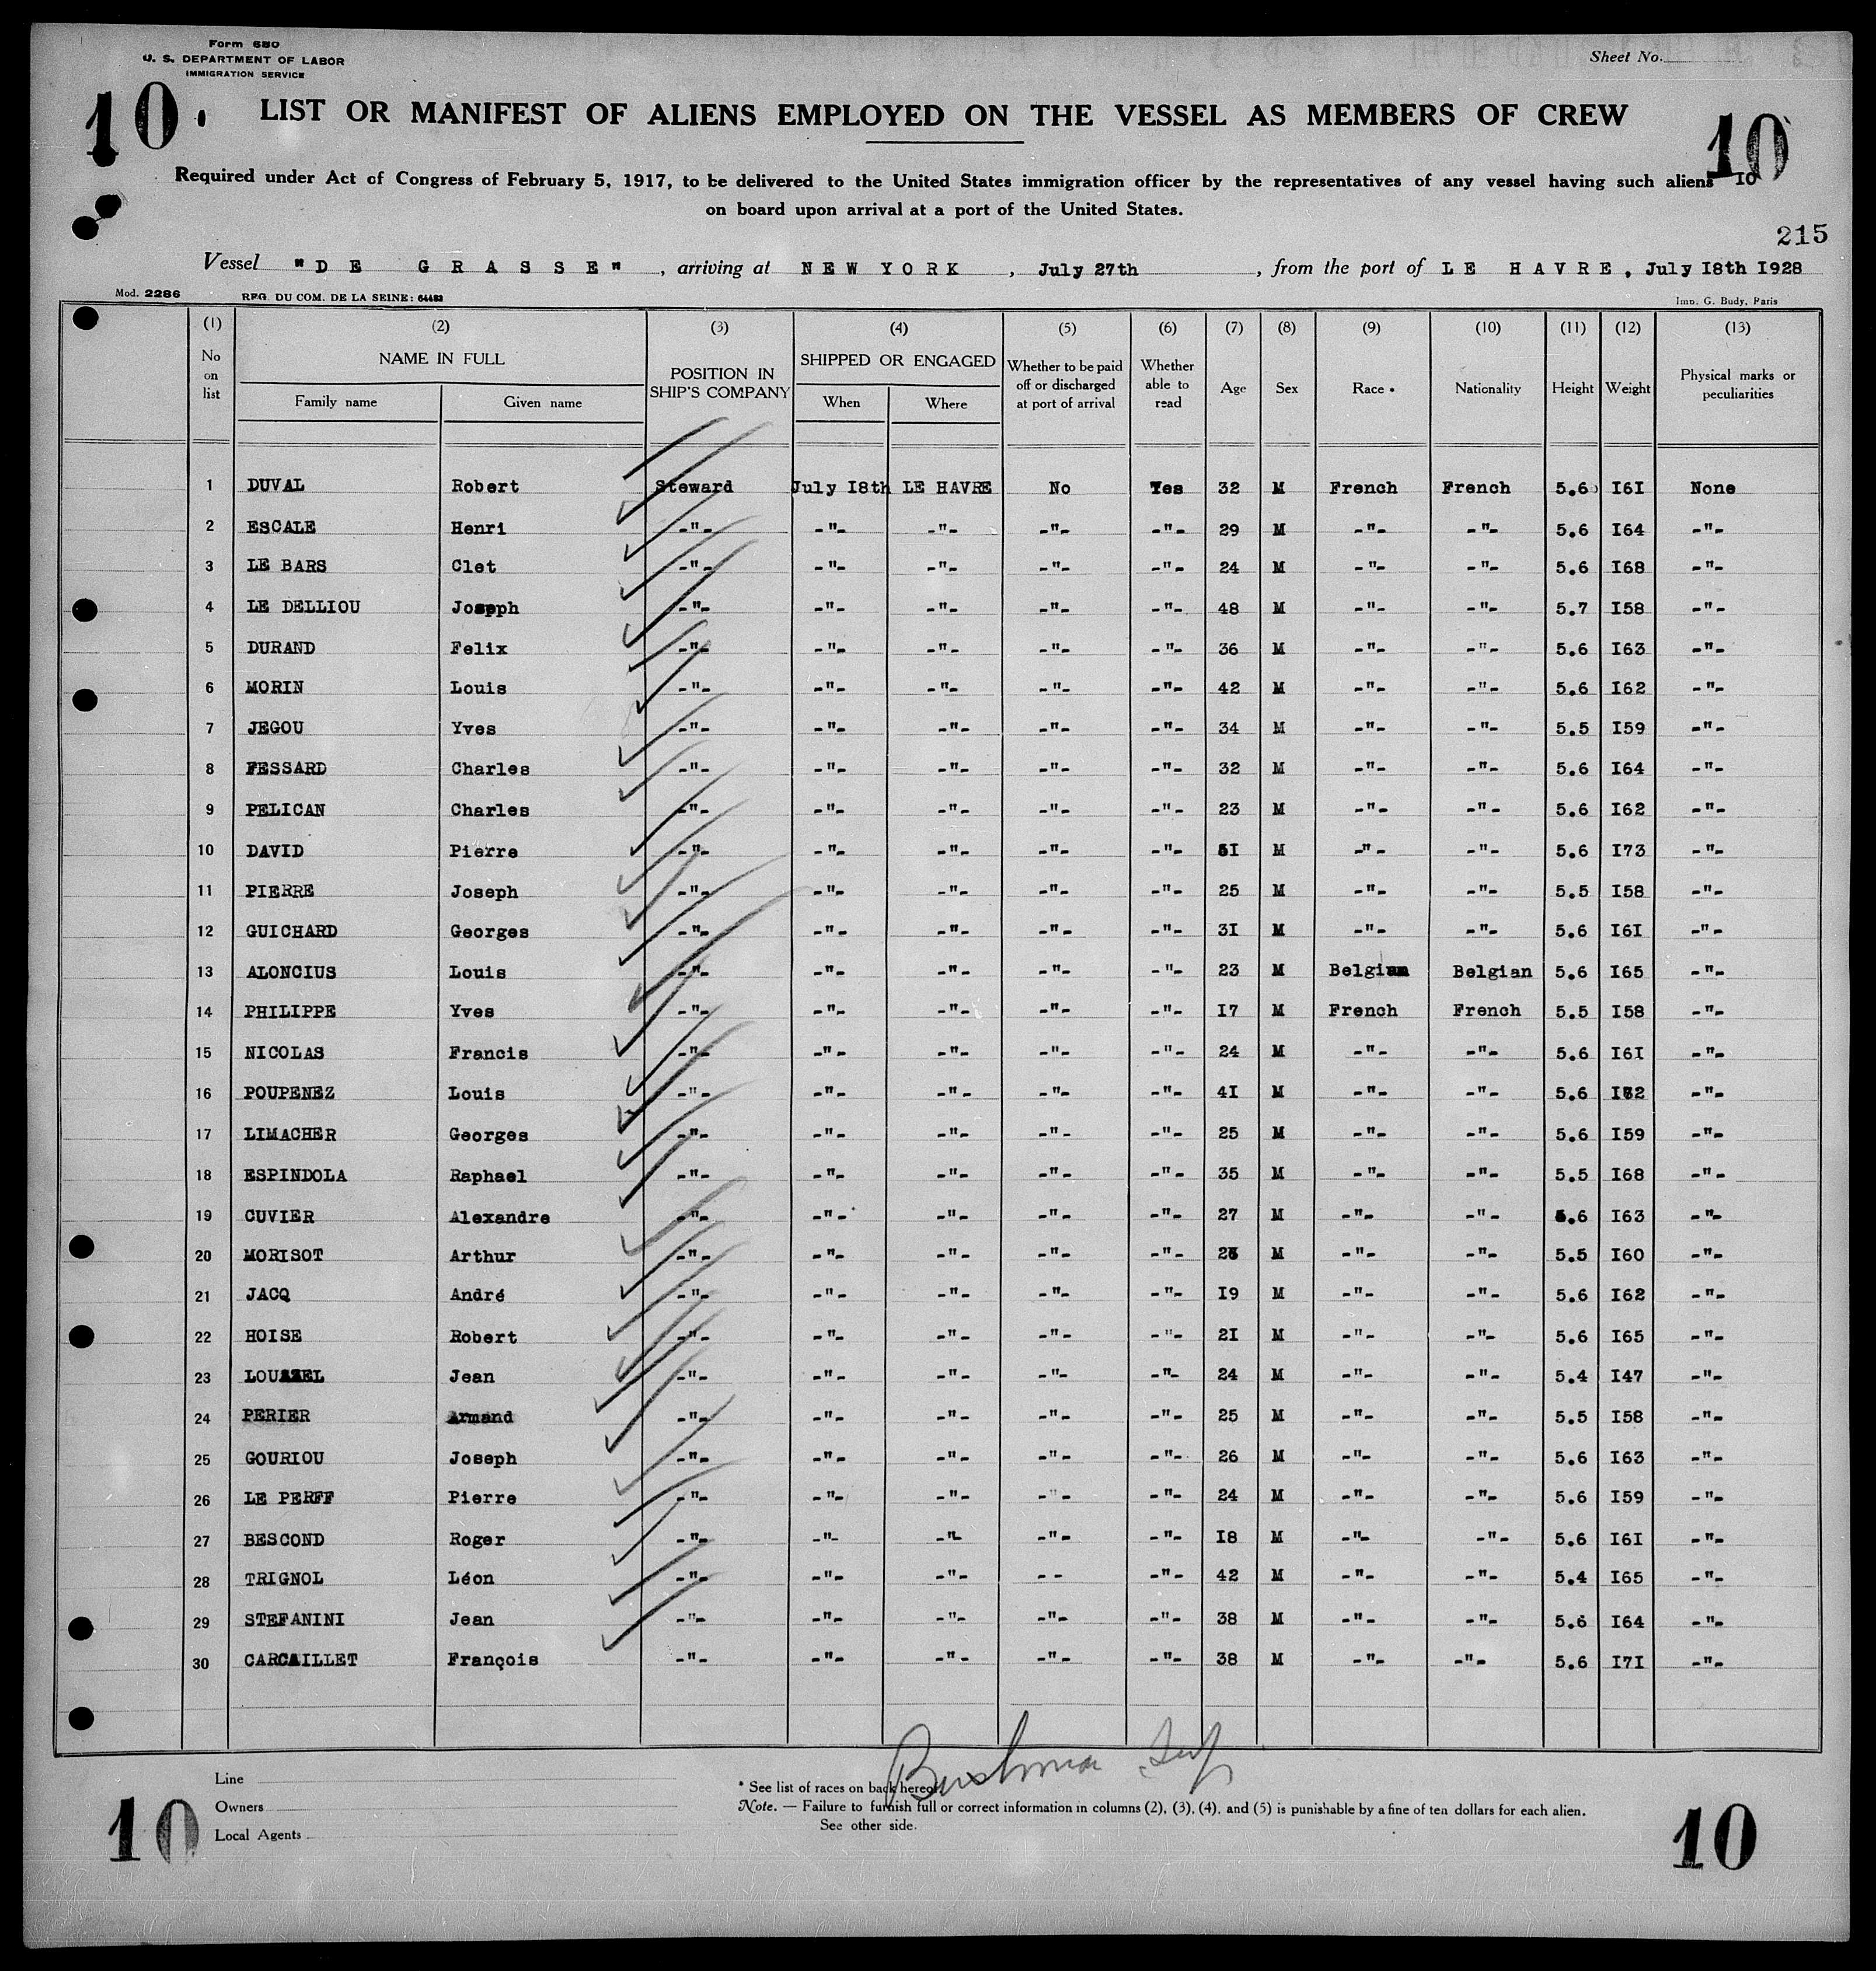 Form 680
U. S. DEPARTMENT OF LABOR
IMMIGRATION SERVICE
Sheet No.
10
LIST OR MANIFEST OF ALIENS EMPLOYED ON THE VESSEL AS MEMBERS OF CREW
10
Required under Act of Congress of February 5, 1917, to be delivered to the United States immigration officer by the representatives of any vessel having such aliens IO
on board upon arrival at a port of the United States.
215
Vessel "DE GRASSE", arriving at NEW YORK, July 27th, from the port of LE HAVRE, July I8th I928
Mod. 2286 REG. DU COM. DE LA SEINE: 64483 Imp. G. Budy, Paris
(1) (2) (3) (4) (5) (6) (7) (8) (9) (10) (11) (12) (13)
No on list NAME IN FULL Family name Given name POSITION IN SHIP'S COMPANY SHIPPED OR ENGAGED When Where Whether to be paid off or discharged at port of arrival Whether able to read Age Sex Race * Nationality Height Weight Physical marks or peculiarities
1 DUVAL Robert Steward July I8th LE HAVRE No Yes 32 M French French 5.6 I6I None
2 ESCALE Henri -"- -"- -"- -"- -"- 29 M -"- -"- 5.6 I64 -"-
3 LE BARS Clet -"- -"- -"- -"- -"- 24 M -"- -"- 5.6 I68 -"-
4 LE DELLIOU Joseph -"- -"- -"- -"- -"- 48 M -"- -"- 5.7 I58 -"-
5 DURAND Felix -"- -"- -"- -"- -"- 36 M -"- -"- 5.6 I63 -"-
6 MORIN Louis -"- -"- -"- -"- -"- 42 M -"- -"- 5.6 I62 -"-
7 JEGOU Yves -"- -"- -"- -"- -"- 34 M -"- -"- 5.5 I59 -"-
8 FESSARD Charles -"- -"- -"- -"- -"- 32 M -"- -"- 5.6 I64 -"-
9 PELICAN Charles -"- -"- -"- -"- -"- 23 M -"- -"- 5.6 I62 -"-
10 DAVID Pierre -"- -"- -"- -"- -"- 5I M -"- -"- 5.6 I73 -"-
11 PIERRE Joseph -"- -"- -"- -"- -"- 25 M -"- -"- 5.5 I58 -"-
12 GUICHARD Georges -"- -"- -"- -"- -"- 3I M -"- -"- 5.6 I6I -"-
13 ALONCIUS Louis -"- -"- -"- -"- -"- 23 M Belgian Belgian 5.6 I65 -"-
14 PHILIPPE Yves -"- -"- -"- -"- -"- I7 M French French 5.5 I58 -"-
15 NICOLAS Francis -"- -"- -"- -"- -"- 24 M -"- -"- 5.6 I6I -"-
16 POUPENEZ Louis -"- -"- -"- -"- -"- 4I M -"- -"- 5.6 -"-
17 LIMACHER Georges -"- -"- -"- -"- -"- 25 M -"- -"- 5.6 I59 -"-
18 ESPINDOLA Raphael -"- -"- -"- -"- -"- 35 M -"- -"- 5.5 I68 -"-
19 CUVIER Alexandre -"- -"- -"- -"- -"- 27 M -"- -"- 5.6 I63 -"-
20 MORISOT Arthur -"- -"- -"- -"- -"- M -"- -"- 5.5 I60 -"-
21 JACQ André -"- -"- -"- -"- -"- I9 M -"- -"- 5.6 I62 -"-
22 HOISE Robert -"- -"- -"- -"- -"- 2I M -"- -"- 5.6 I65 -"-
23 Jean -"- -"- -"- -"- -"- 24 M -"- -"- 5.4 I47 -"-
24 PERIER Armand -"- -"- -"- -"- -"- 25 M -"- -"- 5.5 I58 -"-
25 GOURIOU Joseph -"- -"- -"- -"- -"- 26 M -"- -"- 5.6 I63 -"-
26 LE PERFF Pierre -"- -"- -"- -"- -"- 24 M -"- -"- 5.6 I59 -"-
27 BESCOND Roger -"- -"- -"- -"- -"- I8 M -"- -"- 5.6 I6I -"-
28 TRIGNOL Léon -"- -"- -"- - - -"- 42 M -"- -"- 5.4 I65 -"-
29 STEFANINI Jean -"- -"- -"- -"- -"- 38 M -"- -"- 5.6 I64 -"-
30 CARCAILLET François -"- -"- -"- -"- -"- 38 M -"- -"- 5.6 I7I -"-
Line
Owners
Local Agents
* See list of races on back hereof.
Note. — Failure to furnish full or correct information in columns (2), (3), (4), and (5) is punishable by a fine of ten dollars for each alien.
See other side.
10
10